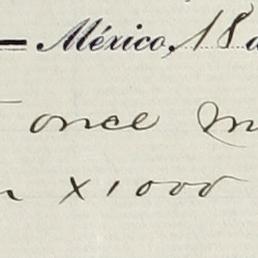 México, 18
once
x1000